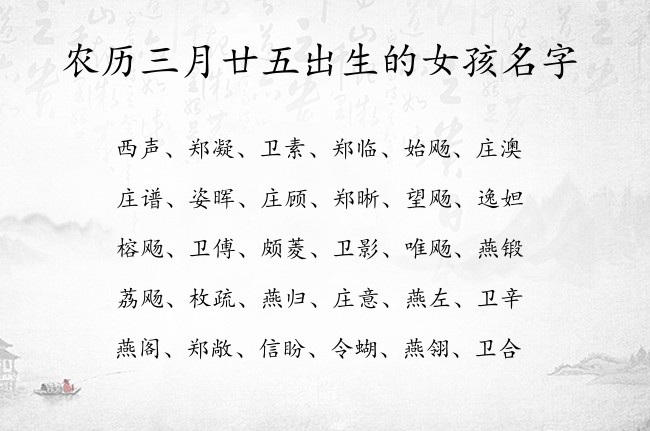 农历三月廿五出生的女孩名字
西声、郑凝、卫素、郑临、始飏、庄澳
庄谱、姿晖、庄顾、郑晰、望飏、逸妲
榕飏、卫傅、颇菱、卫影、唯飏、燕锻
荔飏、枚疏、燕归、庄意、燕左、卫辛
燕阁、郑敞、信盼、令蝴、燕翎、卫合